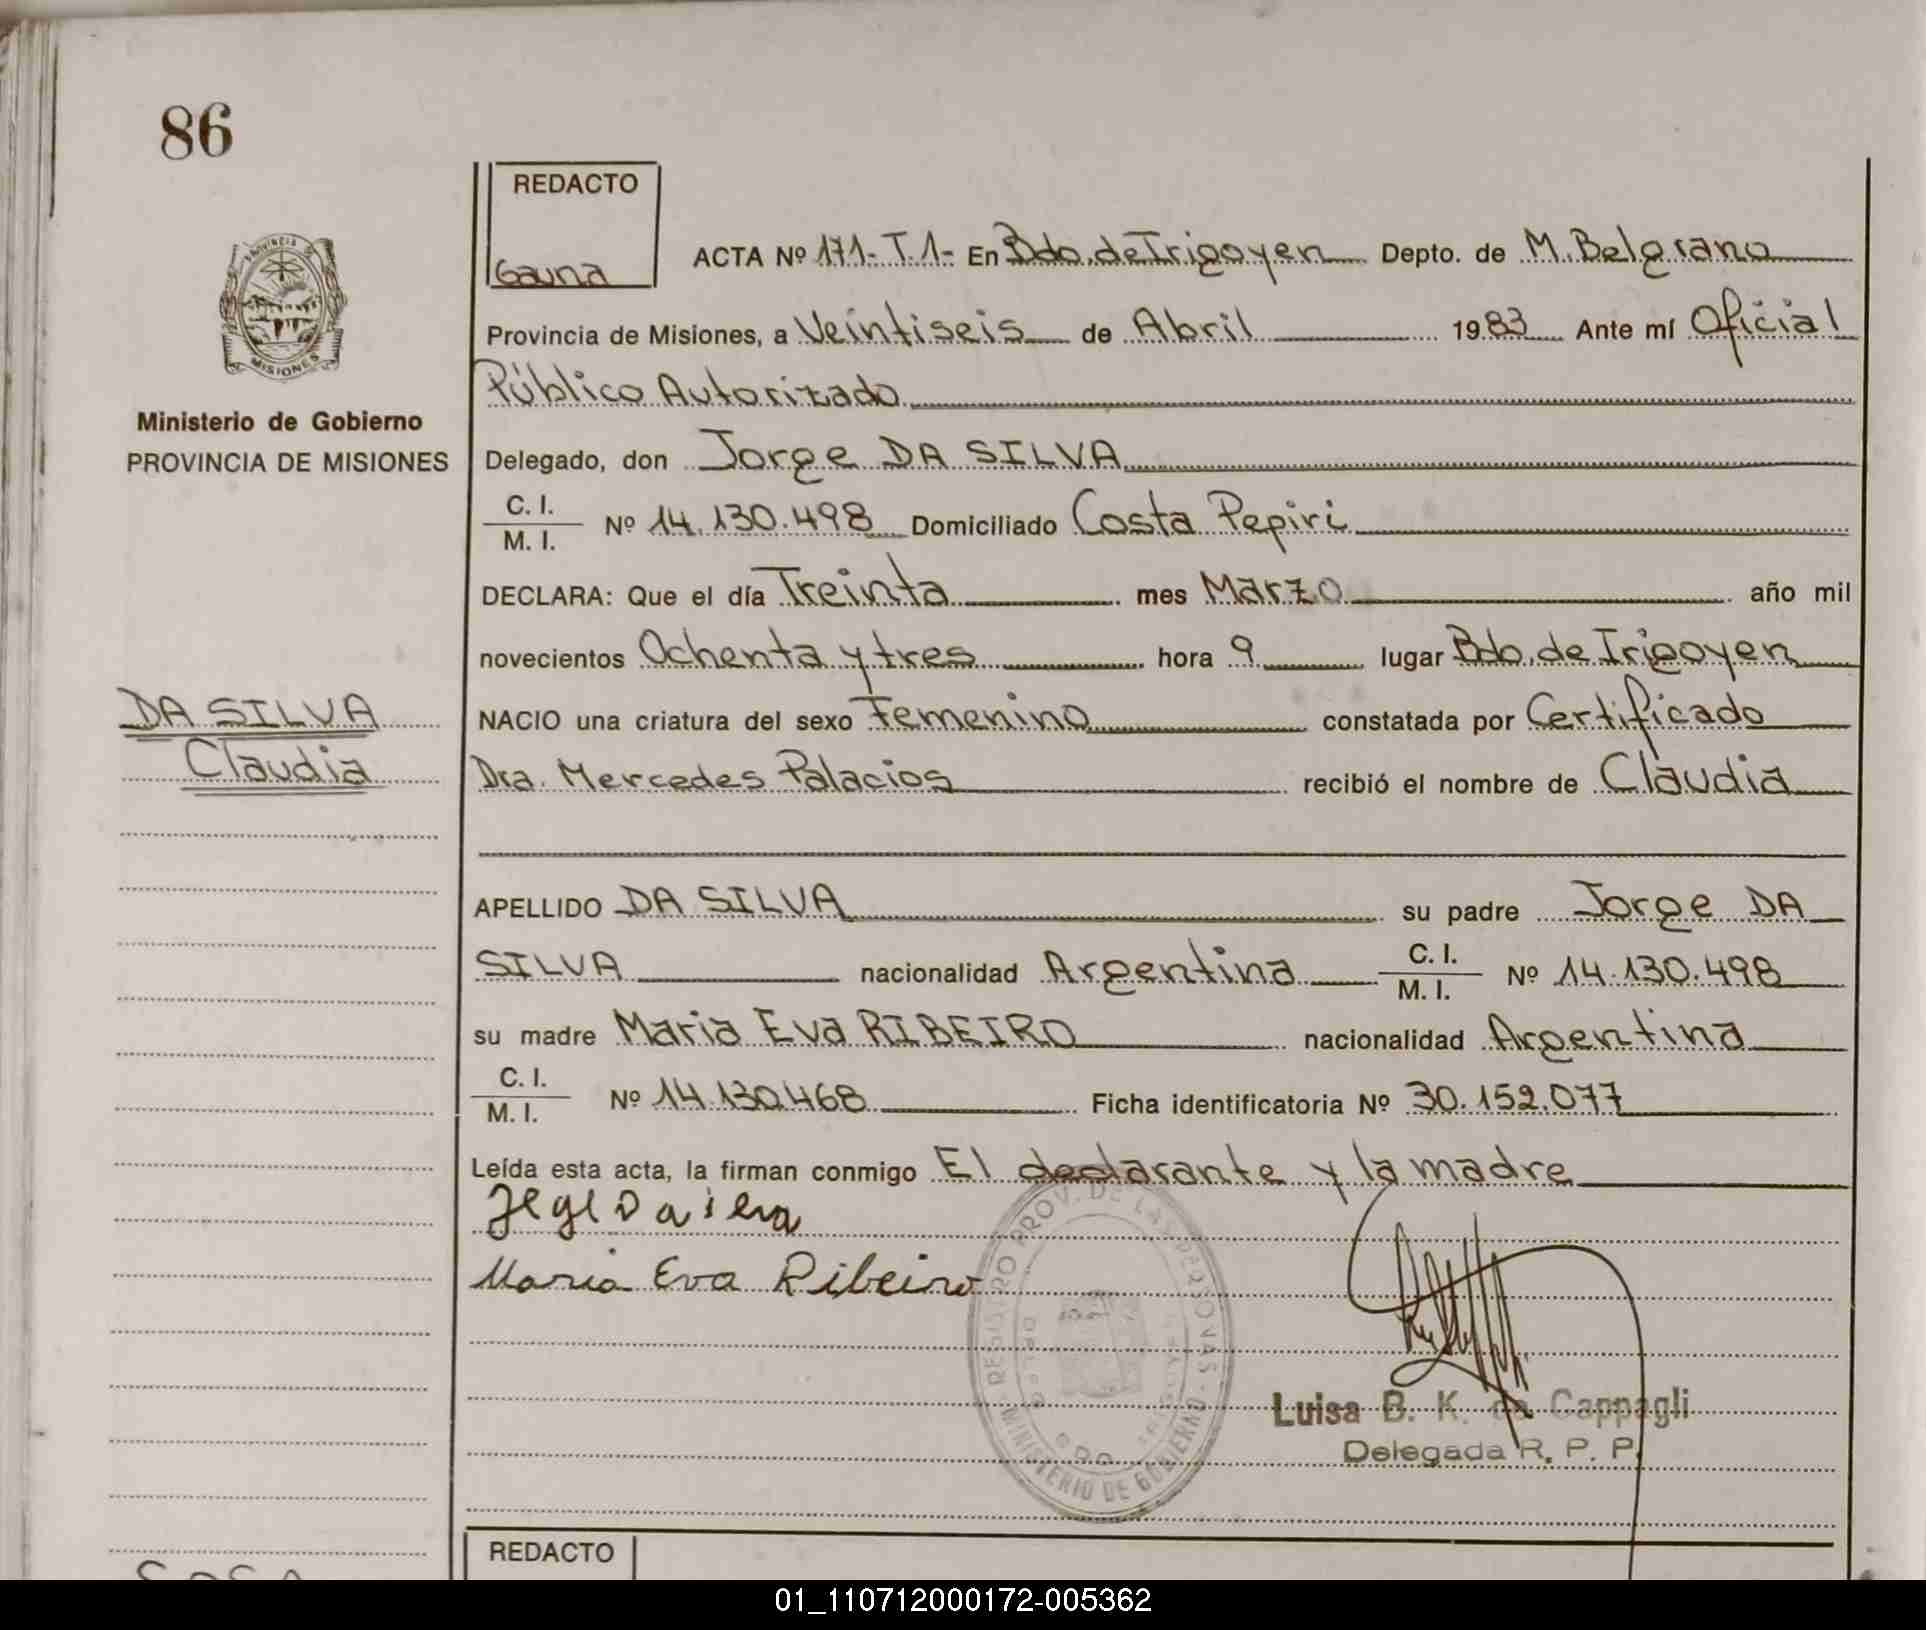 86
REDACTO
Gauna
ACTA Nº 171- T.1- En Bdo. de Irigoyen Depto. de M. Belgrano
PROVINCIA
MISIONES
Provincia de Misiones, a Veintiseis de Abril 1983 Ante mí Oficial
Público Autorizado
Ministerio de Gobierno
PROVINCIA DE MISIONES
Delegado, don Jorge DA SILVA
C. I.
M. I. Nº 14.130.498 Domiciliado Costa Pepiri
DECLARA: Que el día Treinta mes Marzo año mil
novecientos Ochenta y tres hora 9 lugar Bdo. de Irigoyen
DA SILVA
Claudia
NACIO una criatura del sexo Femenino constatada por Certificado
Dra. Mercedes Palacios recibió el nombre de Claudia
APELLIDO DA SILVA su padre Jorge DA
SILVA nacionalidad Argentina C. I. M. I. Nº 14.130.498
su madre Maria Eva RIBEIRO nacionalidad Argentina
C. I.
M. I. Nº 14.130.468 Ficha identificatoria Nº 30.152.077
Leída esta acta, la firman conmigo El declarante y la madre
Maria Eva Ribeiro
REGISTRO PROV. DE LAS PERSONAS
MINISTERIO DE GOBIERNO
Luisa B. K. de Cappagli
Delegada R. P. P.
REDACTO
01_110712000172-005362